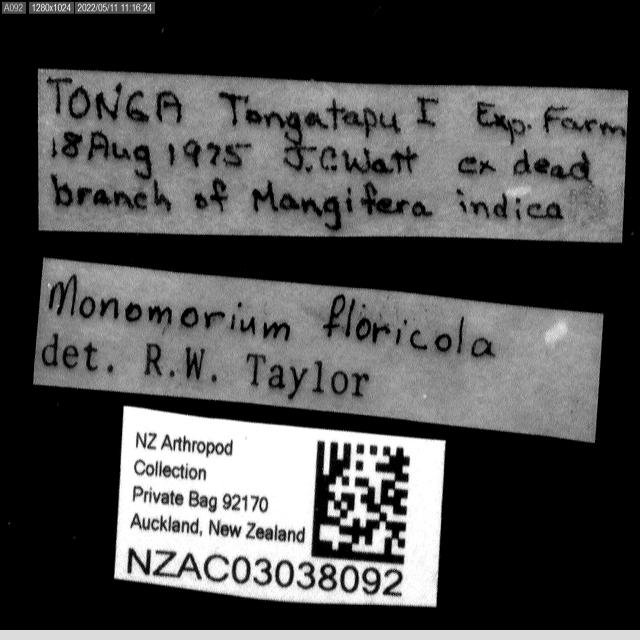 A092 1280x1024 2022/05/11 11:16:24
TONGA Tongatapu I Exp. Farm
18 Aug 1975 J.C. Watt ex dead
branch of Mangifera indica
Monomorium floricola
det. R.W. Taylor
NZ Arthropod
Collection
Private Bag 92170
Auckland, New Zealand
NZAC03038092